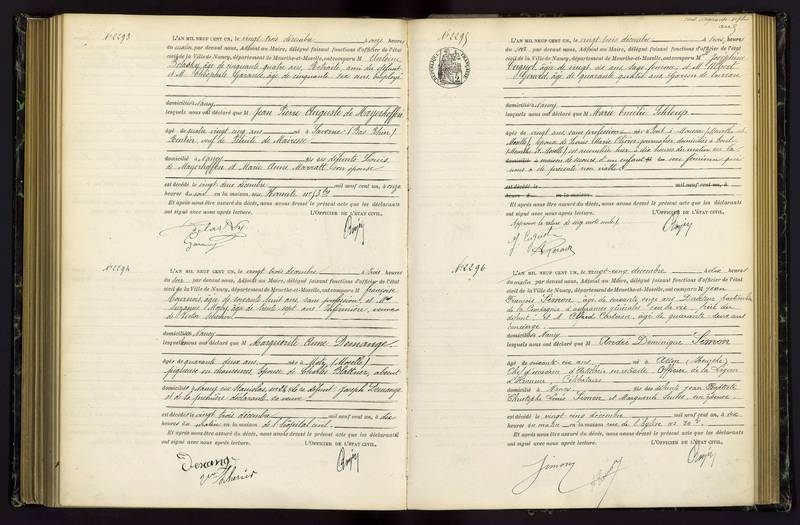 N° 2293
L'AN MIL NEUF CENT UN, le vingt trois décembre à onze heures
du matin par devant nous, Adjoint au Maire, délégué faisant fonctions d'officier de l'état
civil de la Ville de Nancy, département de Meurthe-et-Moselle, ont comparu M. Antoine
âgé de cinquante quatre ans, Retraité, ami du défunt
et M. Théophile âgé de cinquante six ans employé
domiciliés à Nancy
lesquels nous ont déclaré que M. Jean Pierre Auguste de Mayerhoffen
âgé de quatre vingt ans né à Saverne (Bas Rhin)
Rentier, veuf de de Mairesse
domicilié à Nancy fils des défunts Louis
de Mayerhoffen et Marie Anne son épouse
est décédé le vingt deux décembre mil neuf cent un, à onze
heures du soir en la maison, rue Hermite n° 3 bis
Et après nous être assuré du décès, nous avons dressé le présent acte que les déclarants
ont signé avec nous après lecture. L'OFFICIER DE L'ÉTAT CIVIL,
N° 2294
L'AN MIL NEUF CENT UN, le vingt trois décembre à trois heures
du soir par devant nous, Adjoint au Maire, délégué faisant fonctions d'officier de l'état
civil de la Ville de Nancy, département de Meurthe-et-Moselle, ont comparu M. françoise
âgée de soixante huit ans sans profession, et Mme
Suzanne âgée de trente sept ans, Infirmière, veuve
de
domiciliés à Nancy
lesquelles nous ont déclaré que M. Marguerite Anne Demange
âgée de quarante deux ans née à Metz (Moselle)
piqueuse en chaussures, épouse de Charles Blattner, absent
domiciliée à Nancy, rue Stanislas, fille de défunt Joseph Demange
et de la première déclarante, sa veuve
est décédée le vingt trois décembre mil neuf cent un, à dix
heures du matin en la maison de l'hôpital civil
Et après nous être assuré du décès, nous avons dressé le présent acte que les déclarants
ont signé avec nous après lecture. L'OFFICIER DE L'ÉTAT CIVIL,
N° 2295
L'AN MIL NEUF CENT UN, le vingt trois décembre à trois heures
du soir par devant nous, Adjoint au Maire, délégué faisant fonctions d'officier de l'état
civil de la Ville de Nancy, département de Meurthe-et-Moselle, ont comparu Mme Joséphine
âgée de vingt six ans, Sage femme, et M. Albert
Gérard, âgé de quarante ans Garçon de bureau
domiciliés à Nancy
lesquels nous ont déclaré que Marie Emélie
âgée de vingt ans sans profession née à Pont à Mousson (Meurthe et
Moselle), épouse de Louis Marie domiciliée à
(Meurthe et Moselle) est accouchée hier à heures du matin en la
maison de secours, d'un enfant du sexe féminin qui
nous a été présenté non viable
est décédé le mil neuf cent un, à
heures en la maison
Et après nous être assuré du décès, nous avons dressé le présent acte que les déclarants
ont signé avec nous après lecture. L'OFFICIER DE L'ÉTAT CIVIL,
Approuvé la rature de cinq mots nuls
A Gérard
N° 2296
L'AN MIL NEUF CENT UN, le vingt-cinq décembre à dix heures
du matin, par devant nous, Adjoint au Maire, délégué faisant fonctions d'officier de l'état
civil de la Ville de Nancy, département de Meurthe-et-Moselle, ont comparu M. Jean
François Simon âgé de soixante onze ans Directeur particulier
de la Compagnie d'assurances générales sur la vie, frère du
défunt et M. âgé de quarante deux ans
concierge
domiciliés à Nancy
lesquels nous ont déclaré que M. André Dominique Simon
âgé de soixante six ans né à (Meurthe)
Chef d'escadron d'Artillerie en retraite, Officier de la Légion
d'Honneur, Célibataire
domicilié à Nancy fils des défunts Jean Baptiste
Christophe Louis Simon et Marguerite
est décédé le vingt cinq décembre mil neuf cent un, à six
heures du matin en la maison rue de l'Église n° 20
Et après nous être assuré du décès, nous avons dressé le présent acte que les déclarants
ont signé avec nous après lecture. L'OFFICIER DE L'ÉTAT CIVIL,
Simon